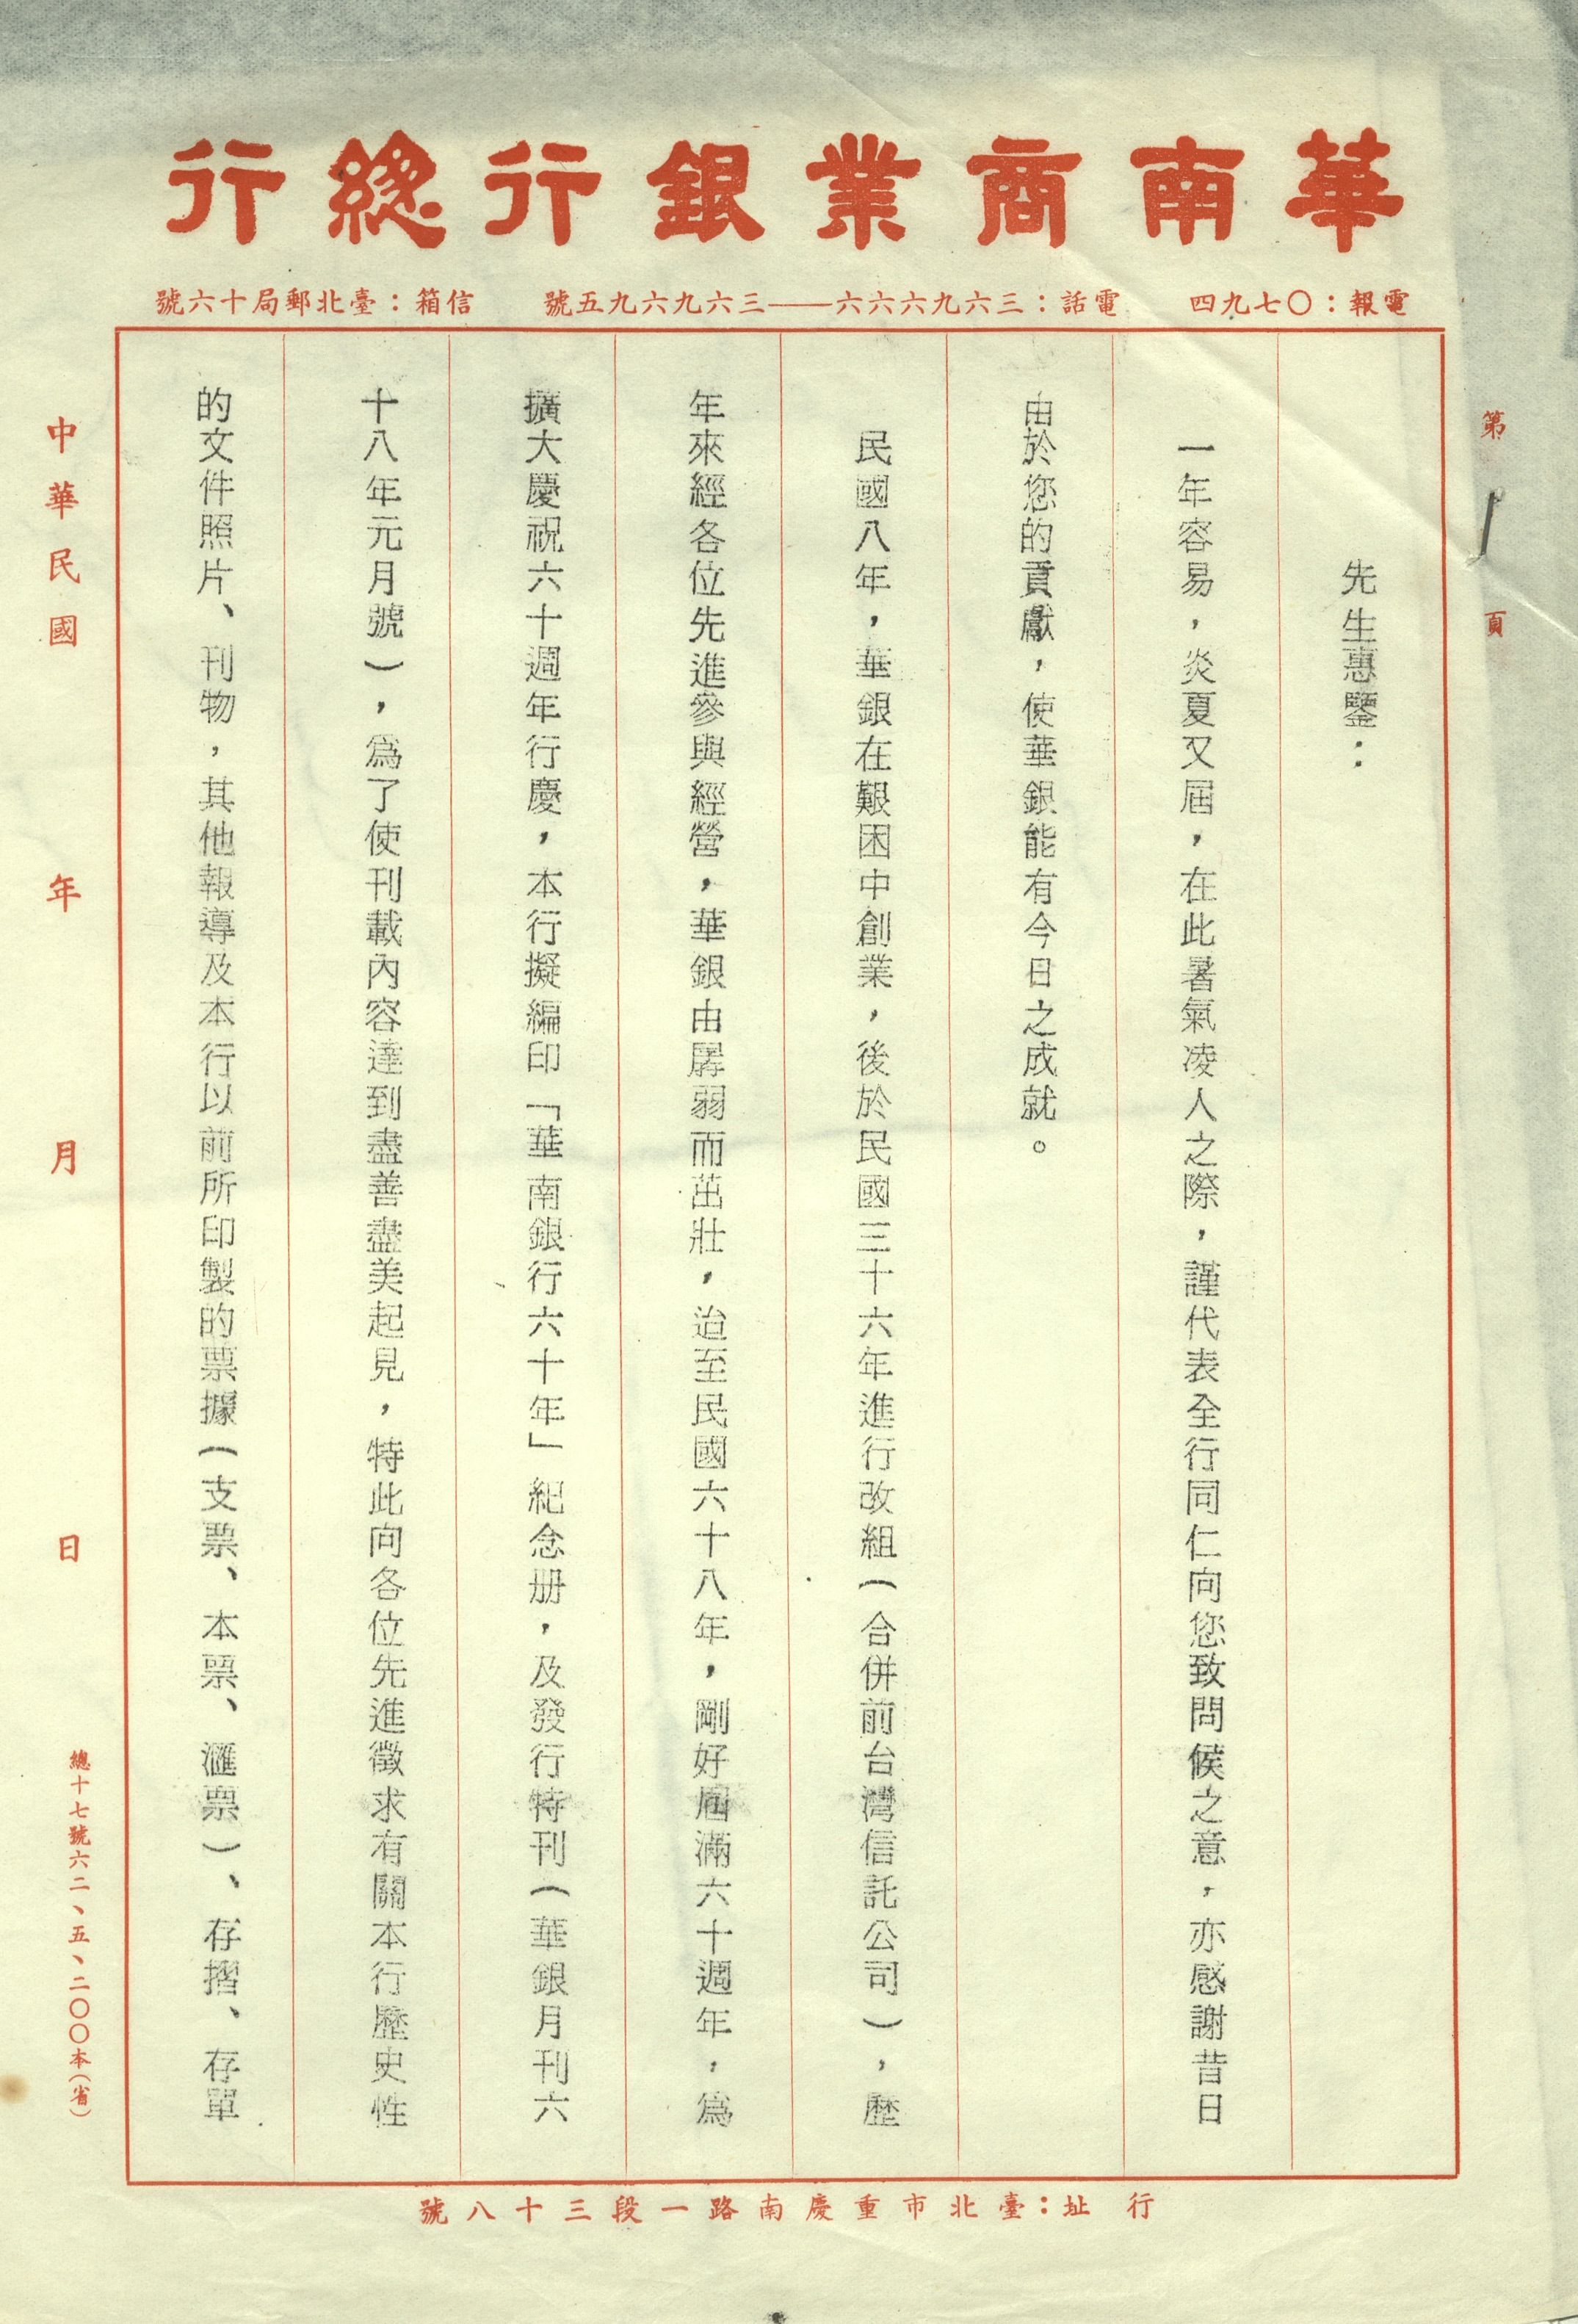 華南商業銀行總行
電報：〇七九四　電話：三六九六六六——三六九六九五號　信箱：臺北郵局十六號
第　頁
先生惠鑒：
一年容易，炎夏又屆，在此暑氣凌人之際，謹代表全行同仁向您致問候之意，亦感謝昔日
由於您的貢獻，使華銀能有今日之成就。
民國八年，華銀在艱困中創業，後於民國三十六年進行改組（合併前台灣信託公司），歷
年來經各位先進參與經營，華銀由孱弱而茁壯，迨至民國六十八年，剛好屆滿六十週年，為
擴大慶祝六十週年行慶，本行擬編印「華南銀行六十年」紀念册，及發行特刊（華銀月刊六
十八年元月號），為了使刊載內容達到盡善盡美起見，特此向各位先進徵求有關本行歷史性
的文件照片、刊物，其他報導及本行以前所印製的票據（支票、本票、滙票）、存摺、存單
中華民國　年　月　日
總十七號六二、五、二〇〇本（省）
行址：臺北市重慶南路一段三十八號